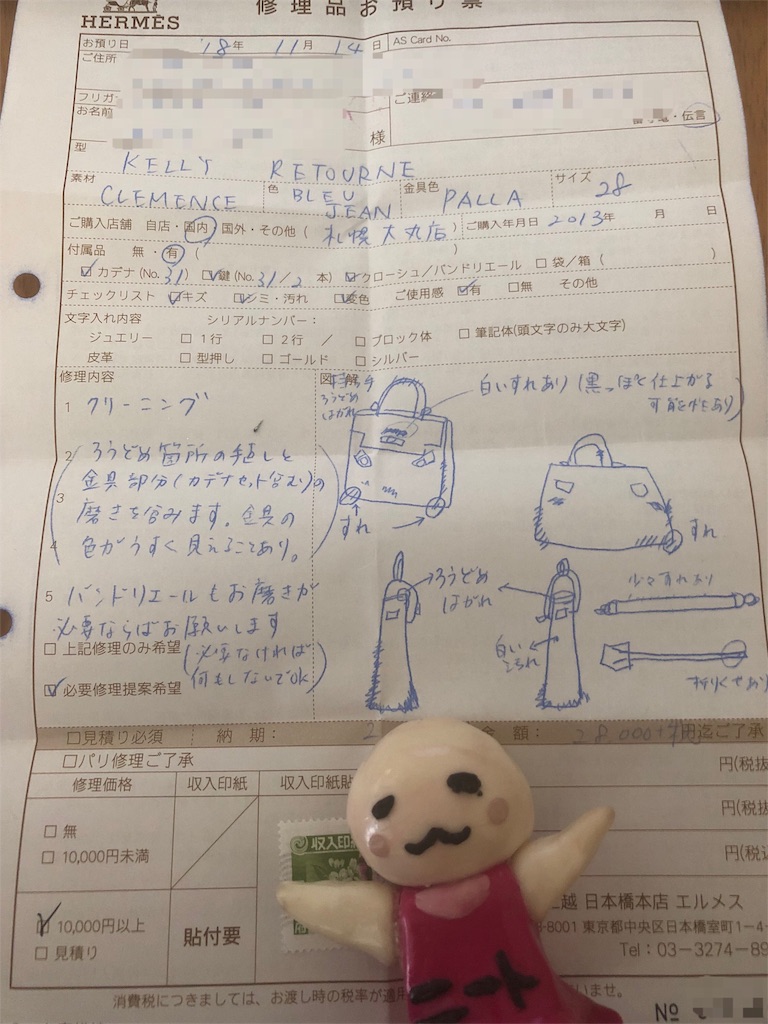 HERMÈS
修理品お預り票
お預り日 '18年 11月 14日 AS Card No.
ご住所
フリガ
お名前 様
ご連絡
・伝言
型 KELLY RETOURNE
素材 CLEMENCE 色 BLEU JEAN 金具色 PALLA サイズ 28
ご購入店舗 自店・国内 国外・その他( 札幌大丸店 ) ご購入年月日 2013年 月 日
付属品 無・有( )
カデナ(No. 31) 鍵(No. 31/2 本) クローシュ/バンドリエール 袋/箱( )
チェックリスト キズ シミ・汚れ 変色 ご使用感 有 無 その他
文字入れ内容 シリアルナンバー:
ジュエリー 1行 2行 / ブロック体 筆記体(頭文字のみ大文字)
皮革 型押し ゴールド シルバー
修理内容
図解
ろうどめ
はがれ
白いすれあり(黒っぽく仕上がる
可能性あり)
1 クリーニング
2 ろうどめ箇所の補しと
3 金具部分(カデナセット含む)の
磨きを含みます。金具の
4 色がうすく見えることあり。
すれ
すれ
5 バンドリエールもお磨きが
必要ならばお願いします
ろうどめ
はがれ
少々すれあり
白い
折りぐせあり
上記修理のみ希望 (必要なければ
必要修理提案希望 何もしないでOK)
見積り必須 納期: 2 金額: 28000+税 円迄ご了承
パリ修理ご了承 円(税抜
修理価格 収入印紙 収入印紙貼
無
10,000円未満
円(税抜
円(税込
収入印紙
10,000円以上
見積り
貼付要
越 日本橋本店 エルメス
-8001 東京都中央区日本橋室町1-4-
Tel:03-3274-89
消費税につきましては、お渡し時の税率が適用
いません。
No